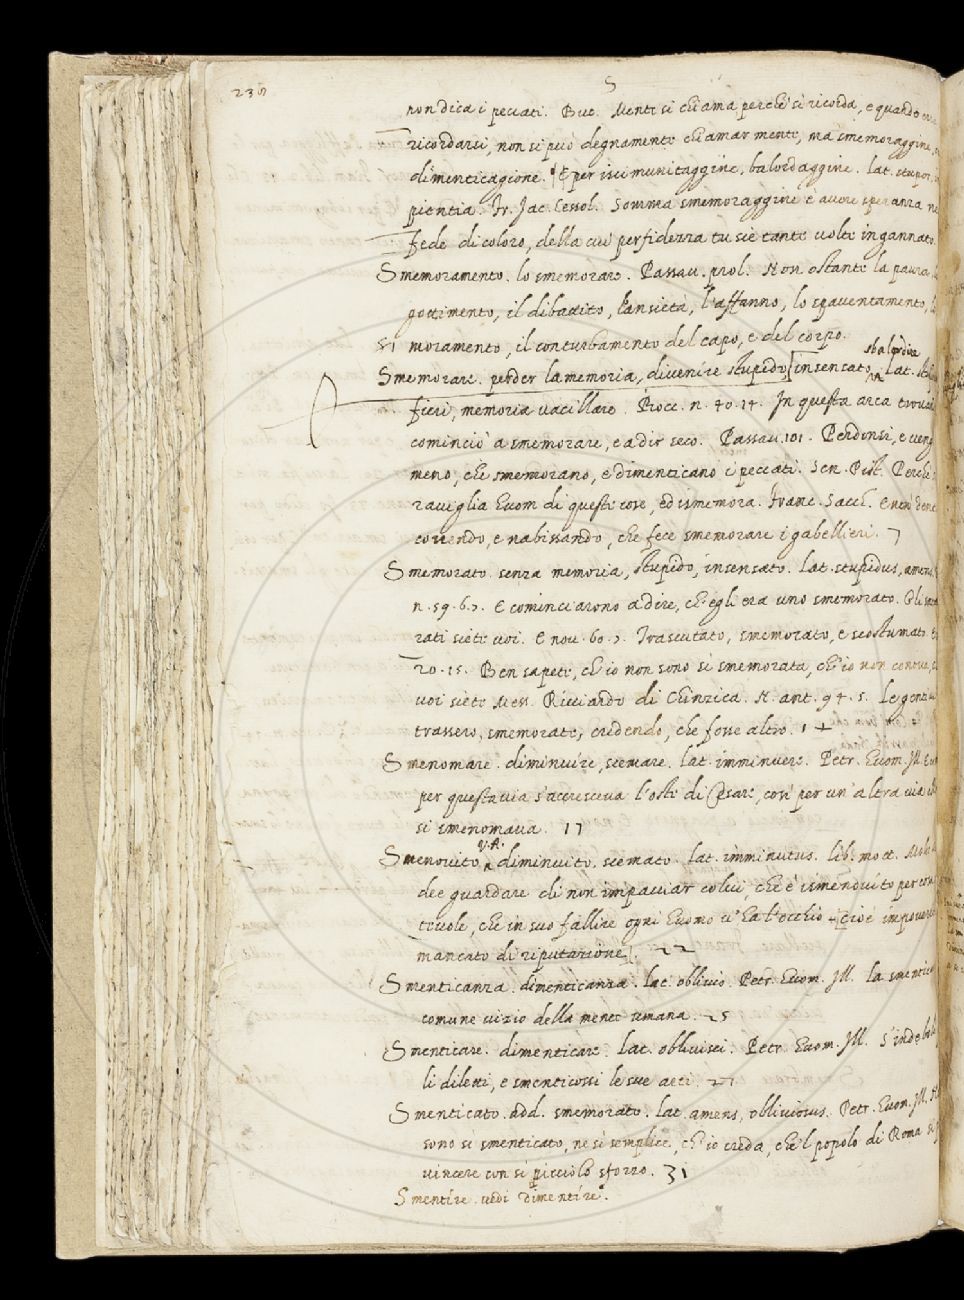 236
S
non dica i peccati. But. Mente si chiama perchè si ricorda, e quando
ricordarsi, non si può degnamente chiamar mente, ma smemoraggine,
dimenticagione. E per iscimunitaggine, balordaggine. Lat. stupor,
pientia. Fr. Jac. Cessol. Somma smemoraggine è avere speranza
fede di coloro, della cui perfidezza tu sie tante volte ingannato.
Smemoramento. lo smemorare. Passav. prol. Non ostante la paura
gottimento, il dibattito, l'ansietà, l'affanno, lo spaventamento,
moramento, il conturbamento del capo, e del corpo.
sbalordire
Smemorare. perder la memoria, divenire stupido, insensato Lat.
fieri, memoria vacillare. Bocc. n. 40. 14. In questa arca
cominciò a smemorare, e a dir seco. Passav. 101. Perdonsi, e
meno, che smemorano, e dimenticano i peccati. Sen. Pist. Perchè
raviglia l'huom di queste cose, ed ismemora. Franc. Sacch. e non
correndo, e nabissando, che fece smemorare i gabellieri. 7
Smemorato. senza memoria, stupido, insensato. Lat. stupidus, amens.
n. 59. 6. E cominciarono a dire, ch'egli era uno smemorato.
rati siete voi. E nov. 60. Trascutato, smemorato, e scostumato.
20. 15. Ben sapete, ch'io non sono sì smemorata, ch'io non
voi siete Mess. Ricciardo di Chinzica. N. ant. 94. 5. Le
trassero, smemorate, credendo, che fosse altro. 1 +
Smenomare. diminuire, scemare. lat. imminuere. Petr. huom. Ill.
per questa via s'accresceva l'oste di Cesare, così per un altra via
si smenomava. 17
V.A.
Smenovito diminuito. scemato. lat. imminutus. lib. mot.
dee guardare di non impacciar colui, che è ismenovito per
tevole, che in suo fallire ogni huomo v'ha l'occhio cioè
mancato di riputazione]. 22
Smenticanza. dimenticanza. lat. oblivio. Petr. huom. Ill. la
comune vizio della mente umana. 25
Smenticare. dimenticare. Lat. oblivisci. Petr. huom. Ill.
li diletti, e smenticossi le sue arti. 27
Smenticato. add. smemorato. lat. amens, obliviosus. Petr. huom. Ill.
sono sì smenticato, nè sì semplice, ch'io creda, che 'l popolo di Roma
vincere con sì picciolo sforzo. 31
Smentire. vedi dimentire.